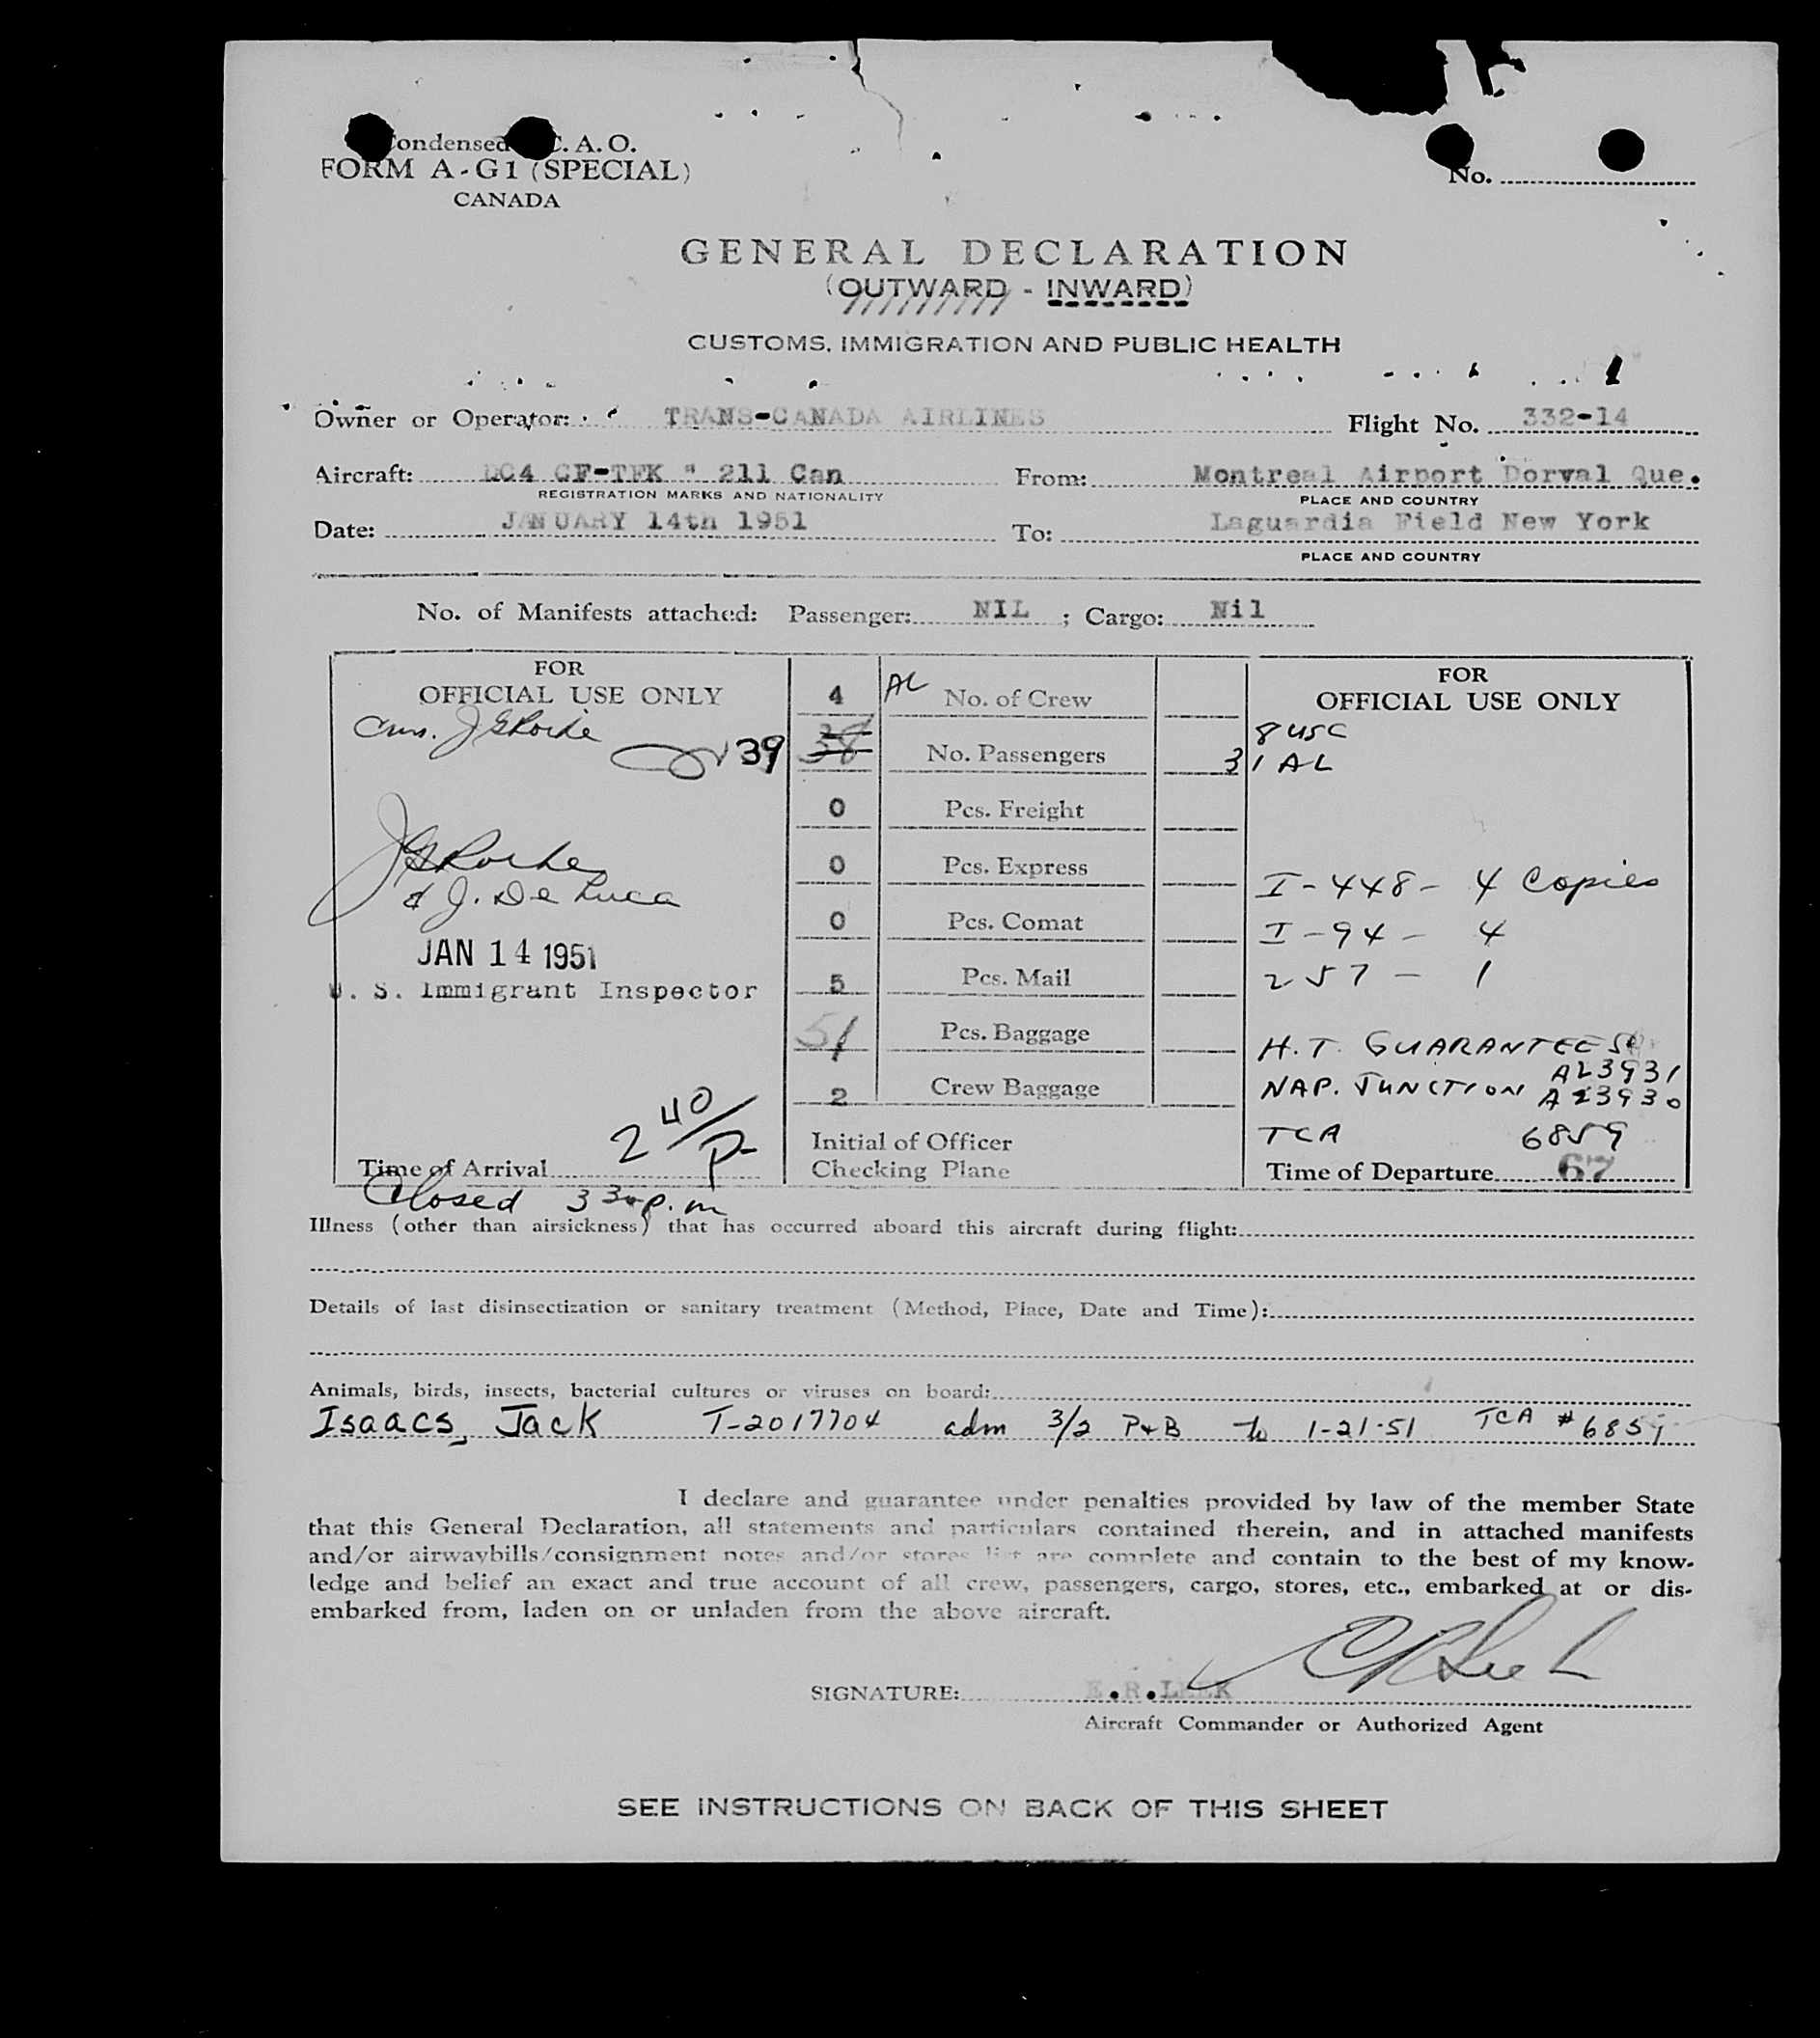 Condensed C. A. O.
FORM A-G1 (SPECIAL)
CANADA
No.
GENERAL DECLARATION
(OUTWARD - INWARD)
CUSTOMS, IMMIGRATION AND PUBLIC HEALTH
Owner or Operator: TRANS-CANADA AIRLINES Flight No. 332-14
Aircraft: DC4 CF-TFK " 211 Can From: Montreal Airport Dorval Que.
REGISTRATION MARKS AND NATIONALITY PLACE AND COUNTRY
Date: JANUARY 14th 1951 To: Laguardia Field New York
PLACE AND COUNTRY
No. of Manifests attached: Passenger: NIL ; Cargo: Nil
FOR
OFFICIAL USE ONLY
J G Roche
39
J G Roche
& J. De Luca
JAN 14 1951
U. S. Immigrant Inspector
2 40/P
Time of Arrival
Closed 3 30 p.m
4 AL No. of Crew
38 No. Passengers
0 Pcs. Freight
0 Pcs. Express
0 Pcs. Comat
5 Pcs. Mail
51 Pcs. Baggage
2 Crew Baggage
Initial of Officer
Checking Plane
FOR
OFFICIAL USE ONLY
8 USC
31 AL
I-448- 4 Copies
I-94- 4
257- 1
H.T. GUARANTEES
A23931
NAP. JUNCTION A23930
TCA 6859
Time of Departure 67
Illness (other than airsickness) that has occurred aboard this aircraft during flight:
Details of last disinsectization or sanitary treatment (Method, Place, Date and Time):
Animals, birds, insects, bacterial cultures or viruses on board:
Isaacs, Jack T-2017704 adm 3/2 P+B to 1-21-51 TCA #6859
I declare and guarantee under penalties provided by law of the member State
that this General Declaration, all statements and particulars contained therein, and in attached manifests
and/or airwaybills/consignment notes and/or stores list are complete and contain to the best of my know-
ledge and belief an exact and true account of all crew, passengers, cargo, stores, etc., embarked at or dis-
embarked from, laden on or unladen from the above aircraft.
SIGNATURE: E.R.LEEK
Aircraft Commander or Authorized Agent
SEE INSTRUCTIONS ON BACK OF THIS SHEET